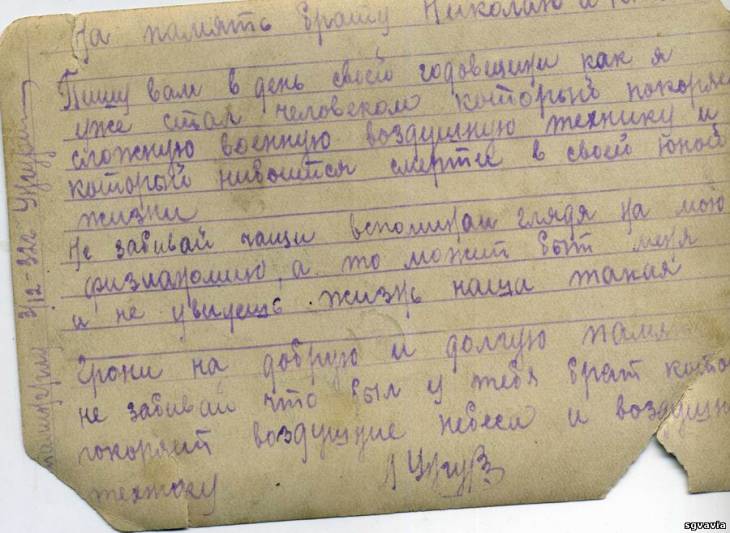 На память брату Николаю и
Пишу вам в день своей годовщини как я
уже стал человеком который покоряе
сложную военную воздушную технику и
который нибоится смерти в своей юной
жизни
Не забивай чащи вспоминай глядя на мою
физианомию, а то может быт меня
и не увидешь. жизнь наща такая
Хрони на добрую и долгую памя
не забивай что был у тебя брат кото
покоряит воздущние небеса и воздущну
технику
3/12-32г
sgvavia